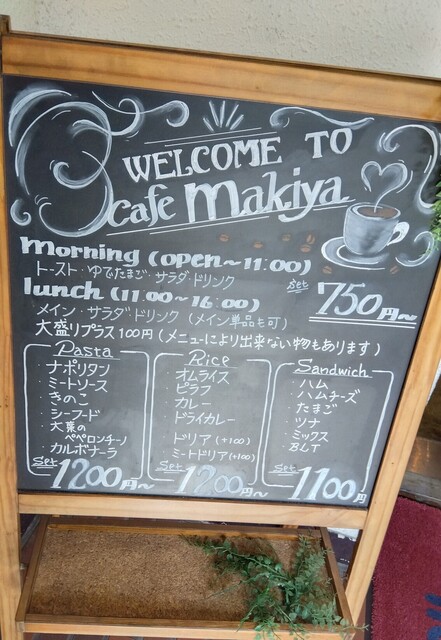 WELCOME TO
cafe Makiya
Morning (open～11:00)
トースト・ゆでたまご・サラダ・ドリンク
set 750円～
lunch (11:00～16:00)
メイン・サラダ・ドリンク (メイン単品も可)
大盛りプラス100円 (メニューにより出来ない物もあります)
Pasta
・ナポリタン
・ミートソース
・きのこ
・シーフード
・大葉の
ペペロンチーノ
・カルボナーラ
set 1200円～
Rice
・オムライス
・ピラフ
・カレー
・ドライカレー
・ドリア (+100)
・ミートドリア (+100)
set 1200円～
Sandwich
・ハム
・ハムチーズ
・たまご
・ツナ
・ミックス
・BLT
set 1100円